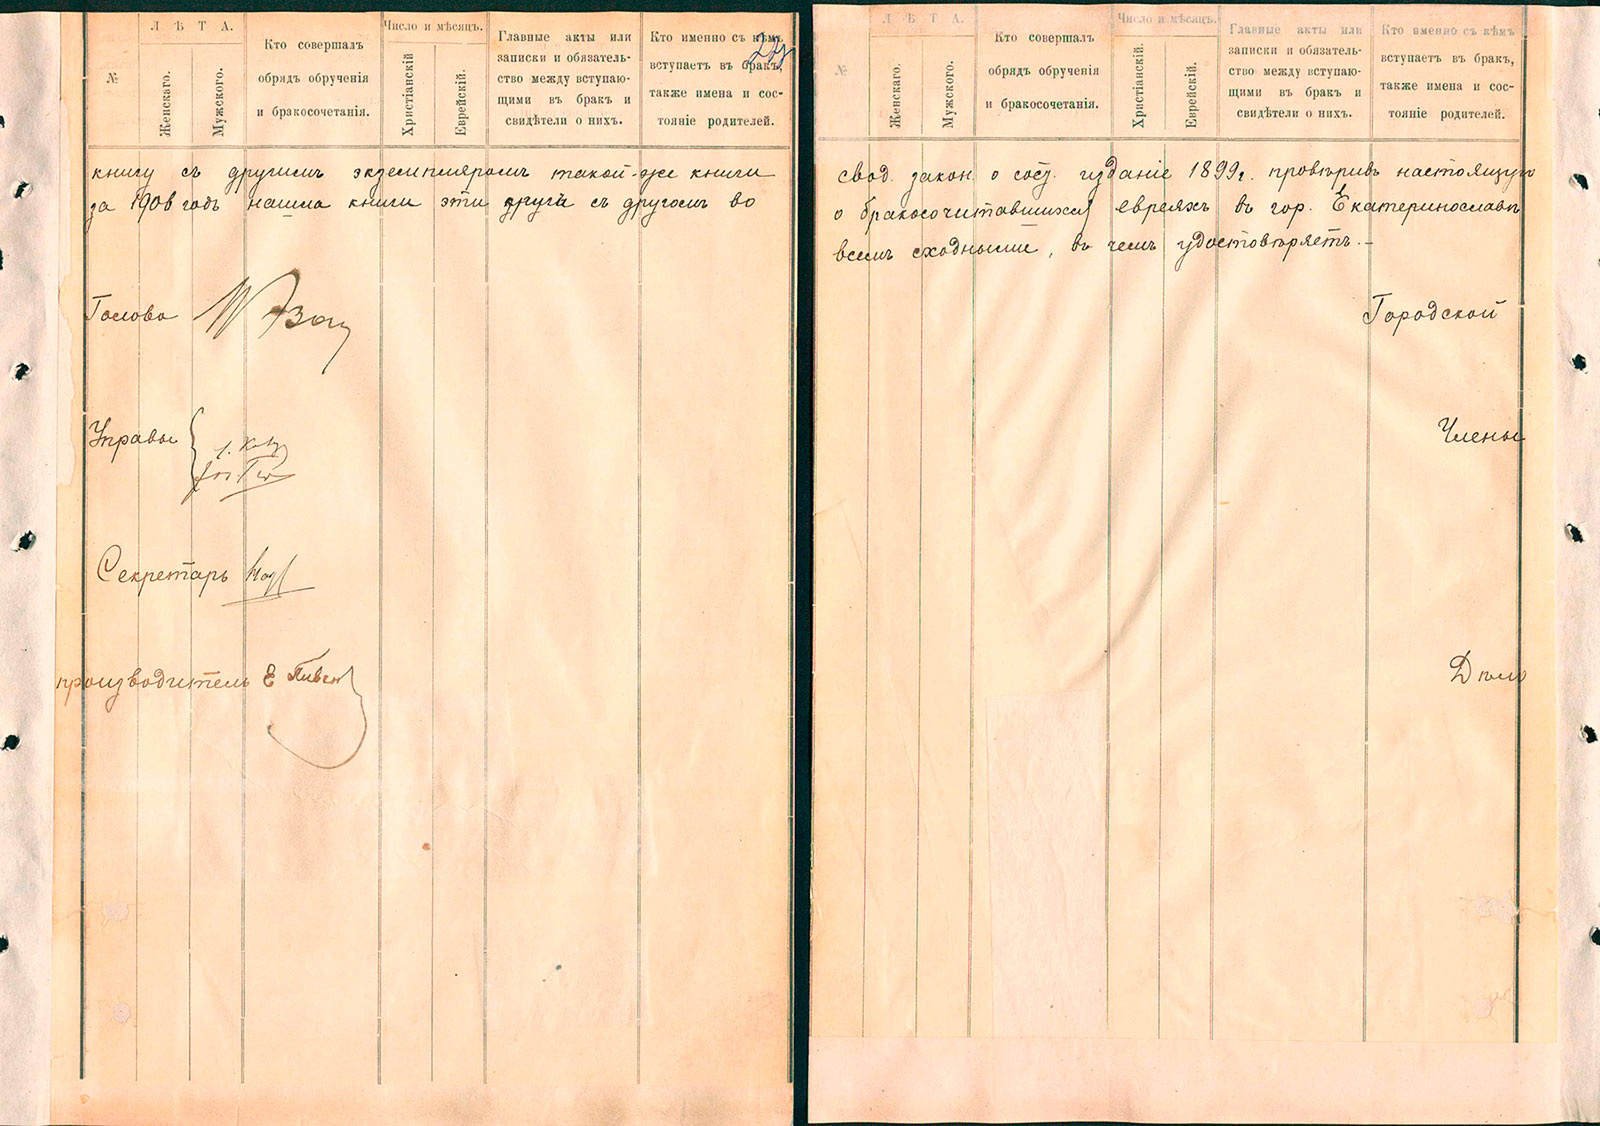 №
ЛѢТА.
Женскаго.
Мужского.
Кто совершалъ
обрядъ обрученія
и бракосочетанія.
Число и мѣсяцъ.
Христіанскій
Еврейскій.
Главные акты или
записки и обязатель-
ство между вступаю-
щими въ бракъ и
свидѣтели о нихъ.
Кто именно съ кѣмъ
вступаетъ въ бракъ,
также имена и сос-
тояніе родителей.
книгу съ другимъ экземпляромъ такой-же книги
за 1908 годъ нашла книги эти другъ съ другомъ во
Голова
Управы
Секретарь
производитель Е
№
ЛѢТА.
Женскаго.
Мужского.
Кто совершалъ
обрядъ обрученія
и бракосочетанія.
Число и мѣсяцъ.
Христіанскій.
Еврейскій.
Главные акты или
записки и обязатель-
ство между вступаю-
щими въ бракъ и
свидѣтели о нихъ.
Кто именно съ кѣмъ
вступаетъ въ бракъ,
также имена и сос-
тояніе родителей.
свод. закон. о сост. изданіе 1899 г. провѣривъ настоящую
о бракосочитавшихся евреяхъ въ гор. Екатеринославѣ
всемъ сходными, въ чемъ удостовѣряетъ.—
Городской
Члены
Дѣло